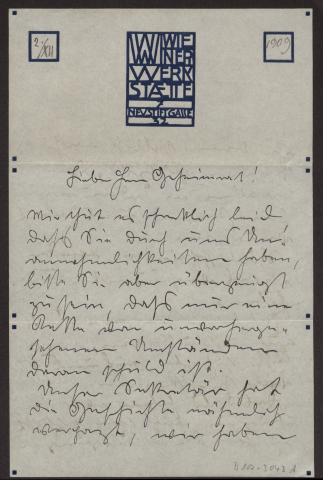 2./XII
WIE
NER
WERK
STÆTTE
7
NEUSTIFTGASSE
32
1909
Liebe Herr Geheimrat!
Mir thut es schrecklich leid
daß Sie durch uns Un-
annehmlichkeiten haben,
bitte Sie aber überzeugt
zu sein, daß nur eine
Kette von unvorherge-
sehenen Umständen
daran schuld ist.
Unser Sekretär hat
die Geschichte nähmlich
verpatzt, wir haben